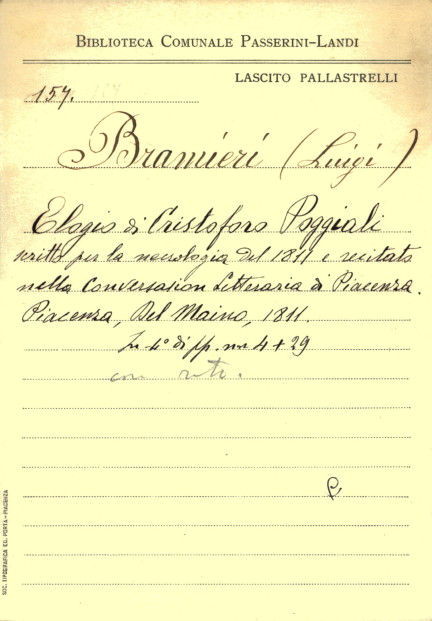 BIBLIOTECA COMUNALE PASSERINI-LANDI
LASCITO PALLASTRELLI
157.
Bramieri (Luigi)
Elogio di Cristoforo Poggiali
scritto per la necrologia del 1811 e recitato
nella Conversazion Letteraria di Piacenza.
Piacenza, Del Maino, 1811.
In 4° di pp. nn 4 + 29
con ritr.
SOC. TIPOGRAFICA ED. PORTA - PIACENZA